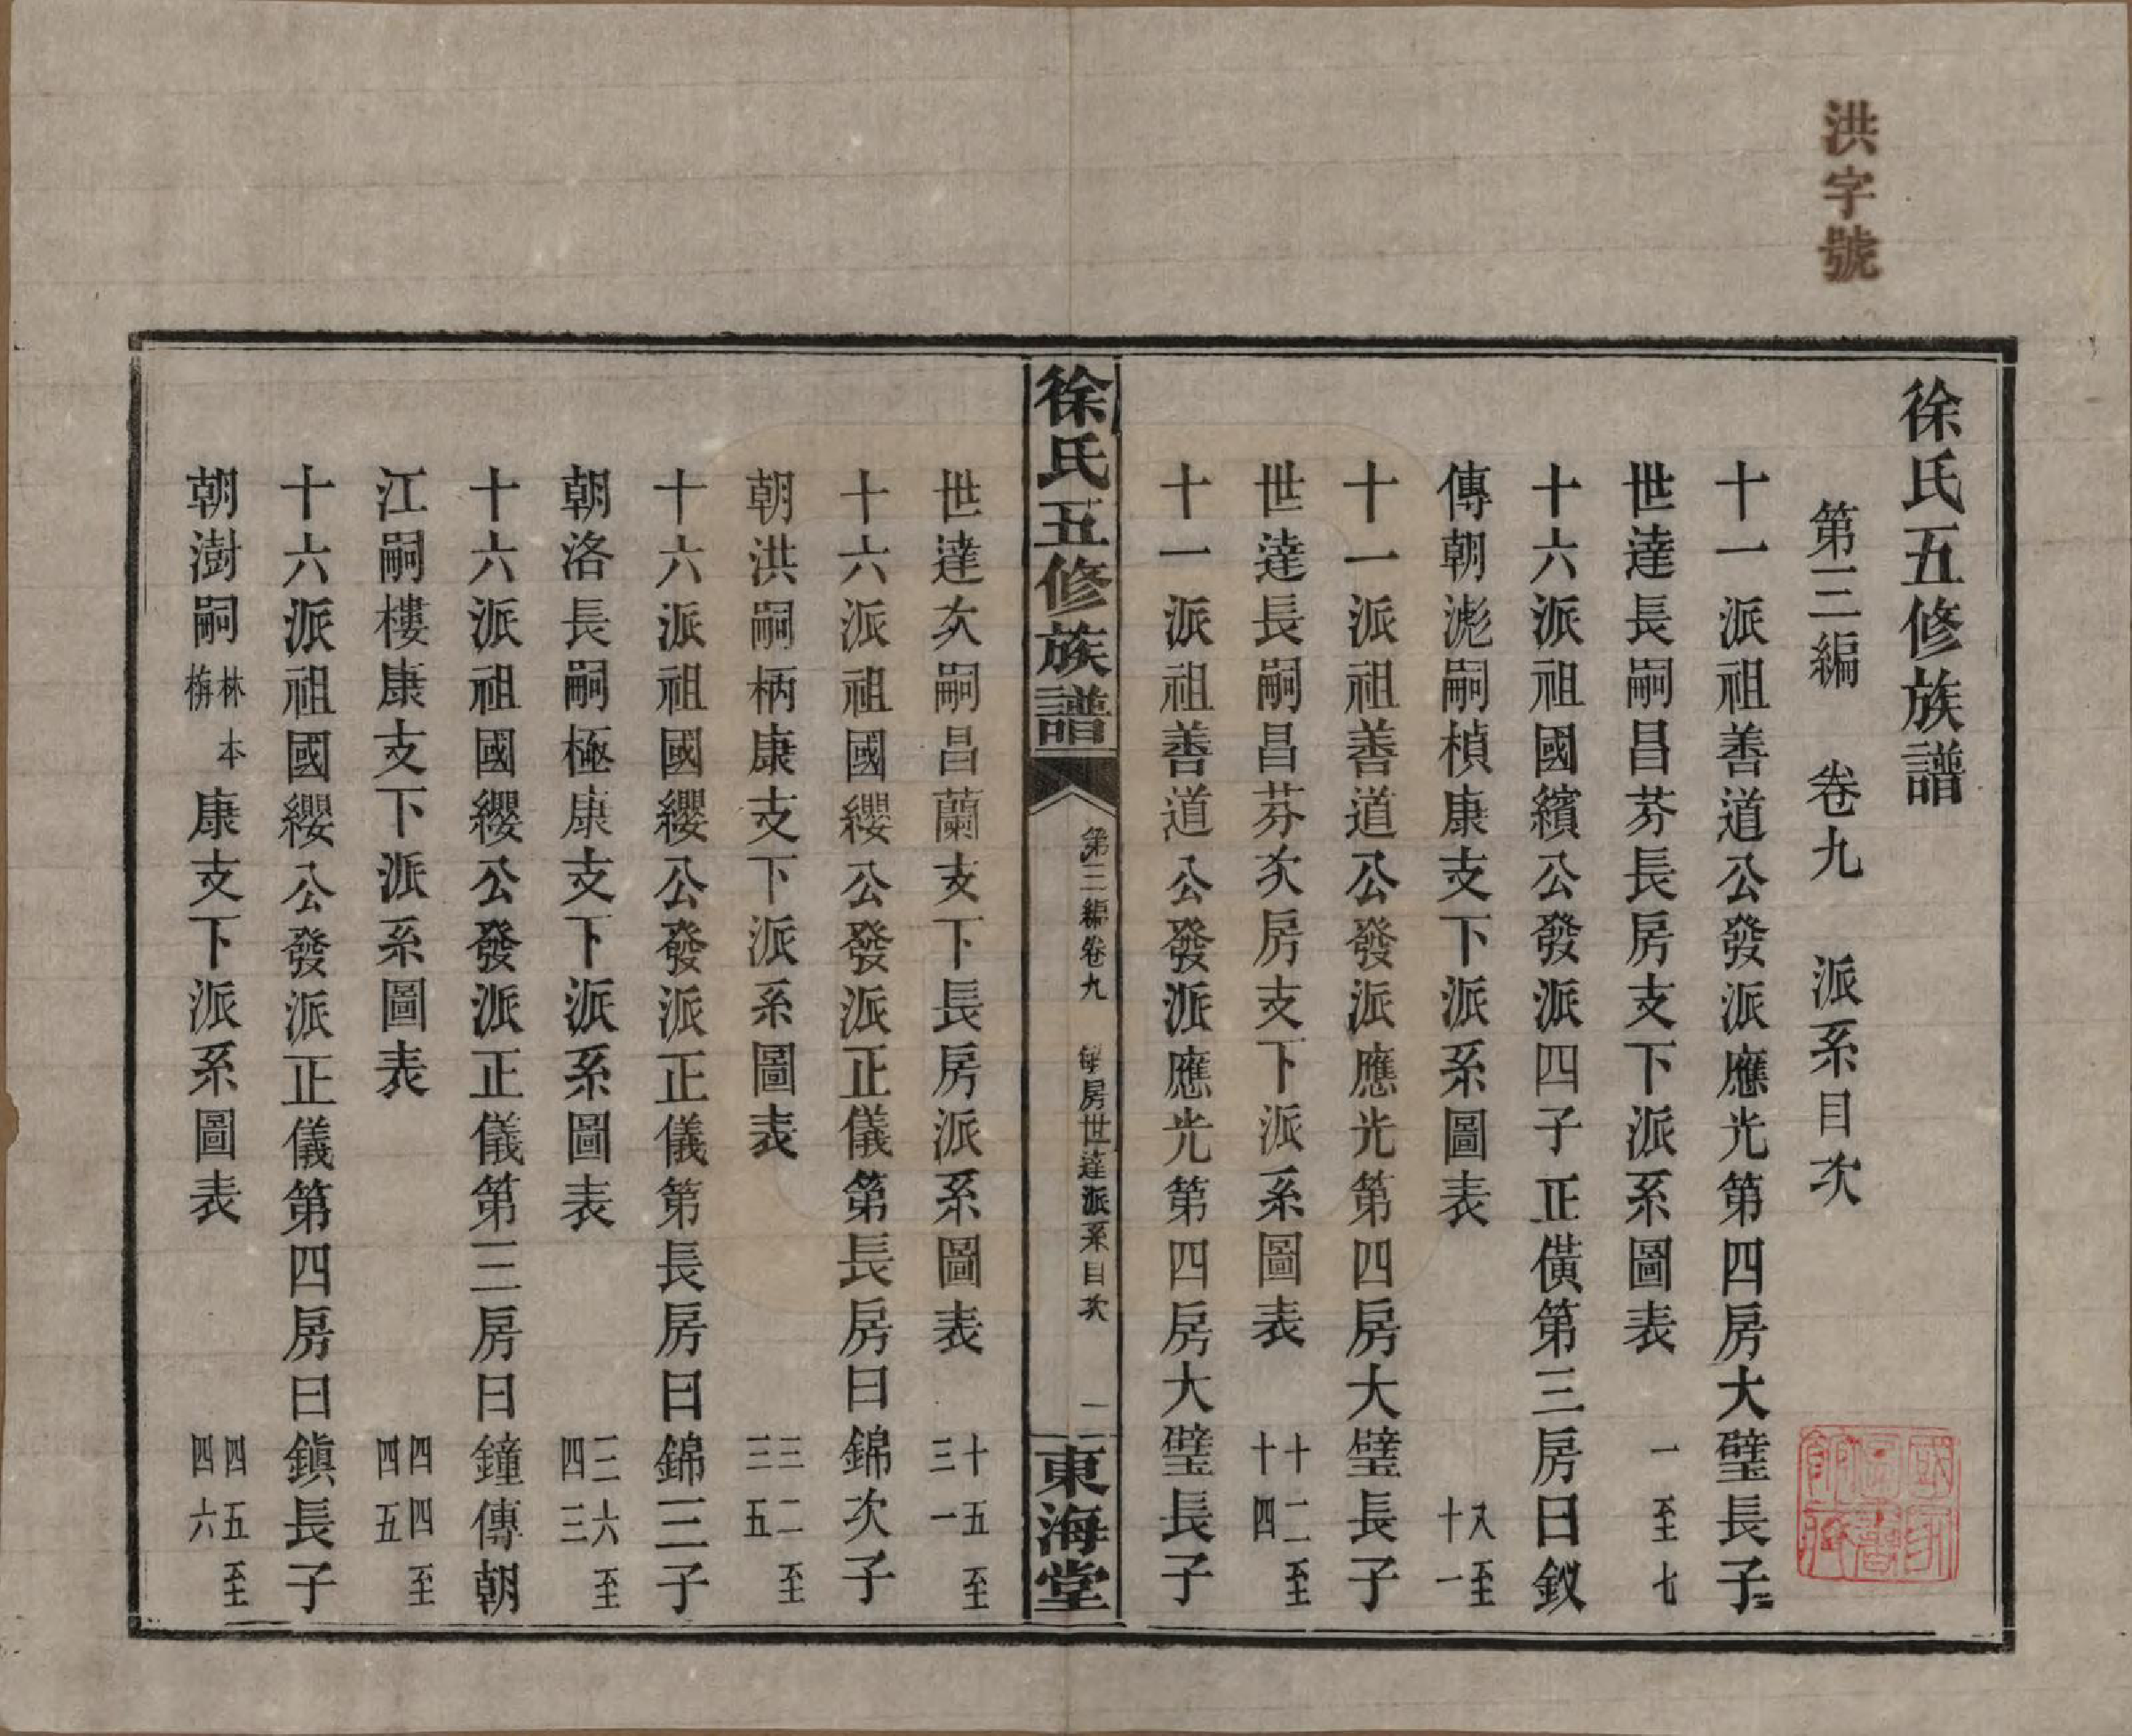 洪字號
徐氏五修族譜
第三編 卷九 派系目次
十一派祖善道公發派應光第四房大璧長子
世達長嗣昌芬長房支下派系圖表 一至七
十六派祖國繽公發派四子正儣第三房曰釵
傳朝滮嗣楨康支下派系圖表 八至十一
十一派祖善道公發派應光第四房大璧長子
世達長嗣昌芬次房支下派系圖表 十二至十四
十一派祖善道公發派應光第四房大璧長子
徐氏五修族譜 第三編卷九 房世達派系目次 一 東海堂
世達次嗣昌蘭支下長房派系圖表 十五至三一
十六派祖國纓公發派正儀第長房曰錦次子
朝洪嗣柄康支下派系圖表 三二至三五
十六派祖國纓公發派正儀第長房曰錦三子
朝洛長嗣極康支下派系圖表 三六至四三
十六派祖國纓公發派正儀第三房曰鐘傳朝
江嗣樓康支下派系圖表 四四至四五
十六派祖國纓公發派正儀第四房曰鎮長子
朝澍嗣林栟本康支下派系圖表 四五至四六
國家圖書館藏